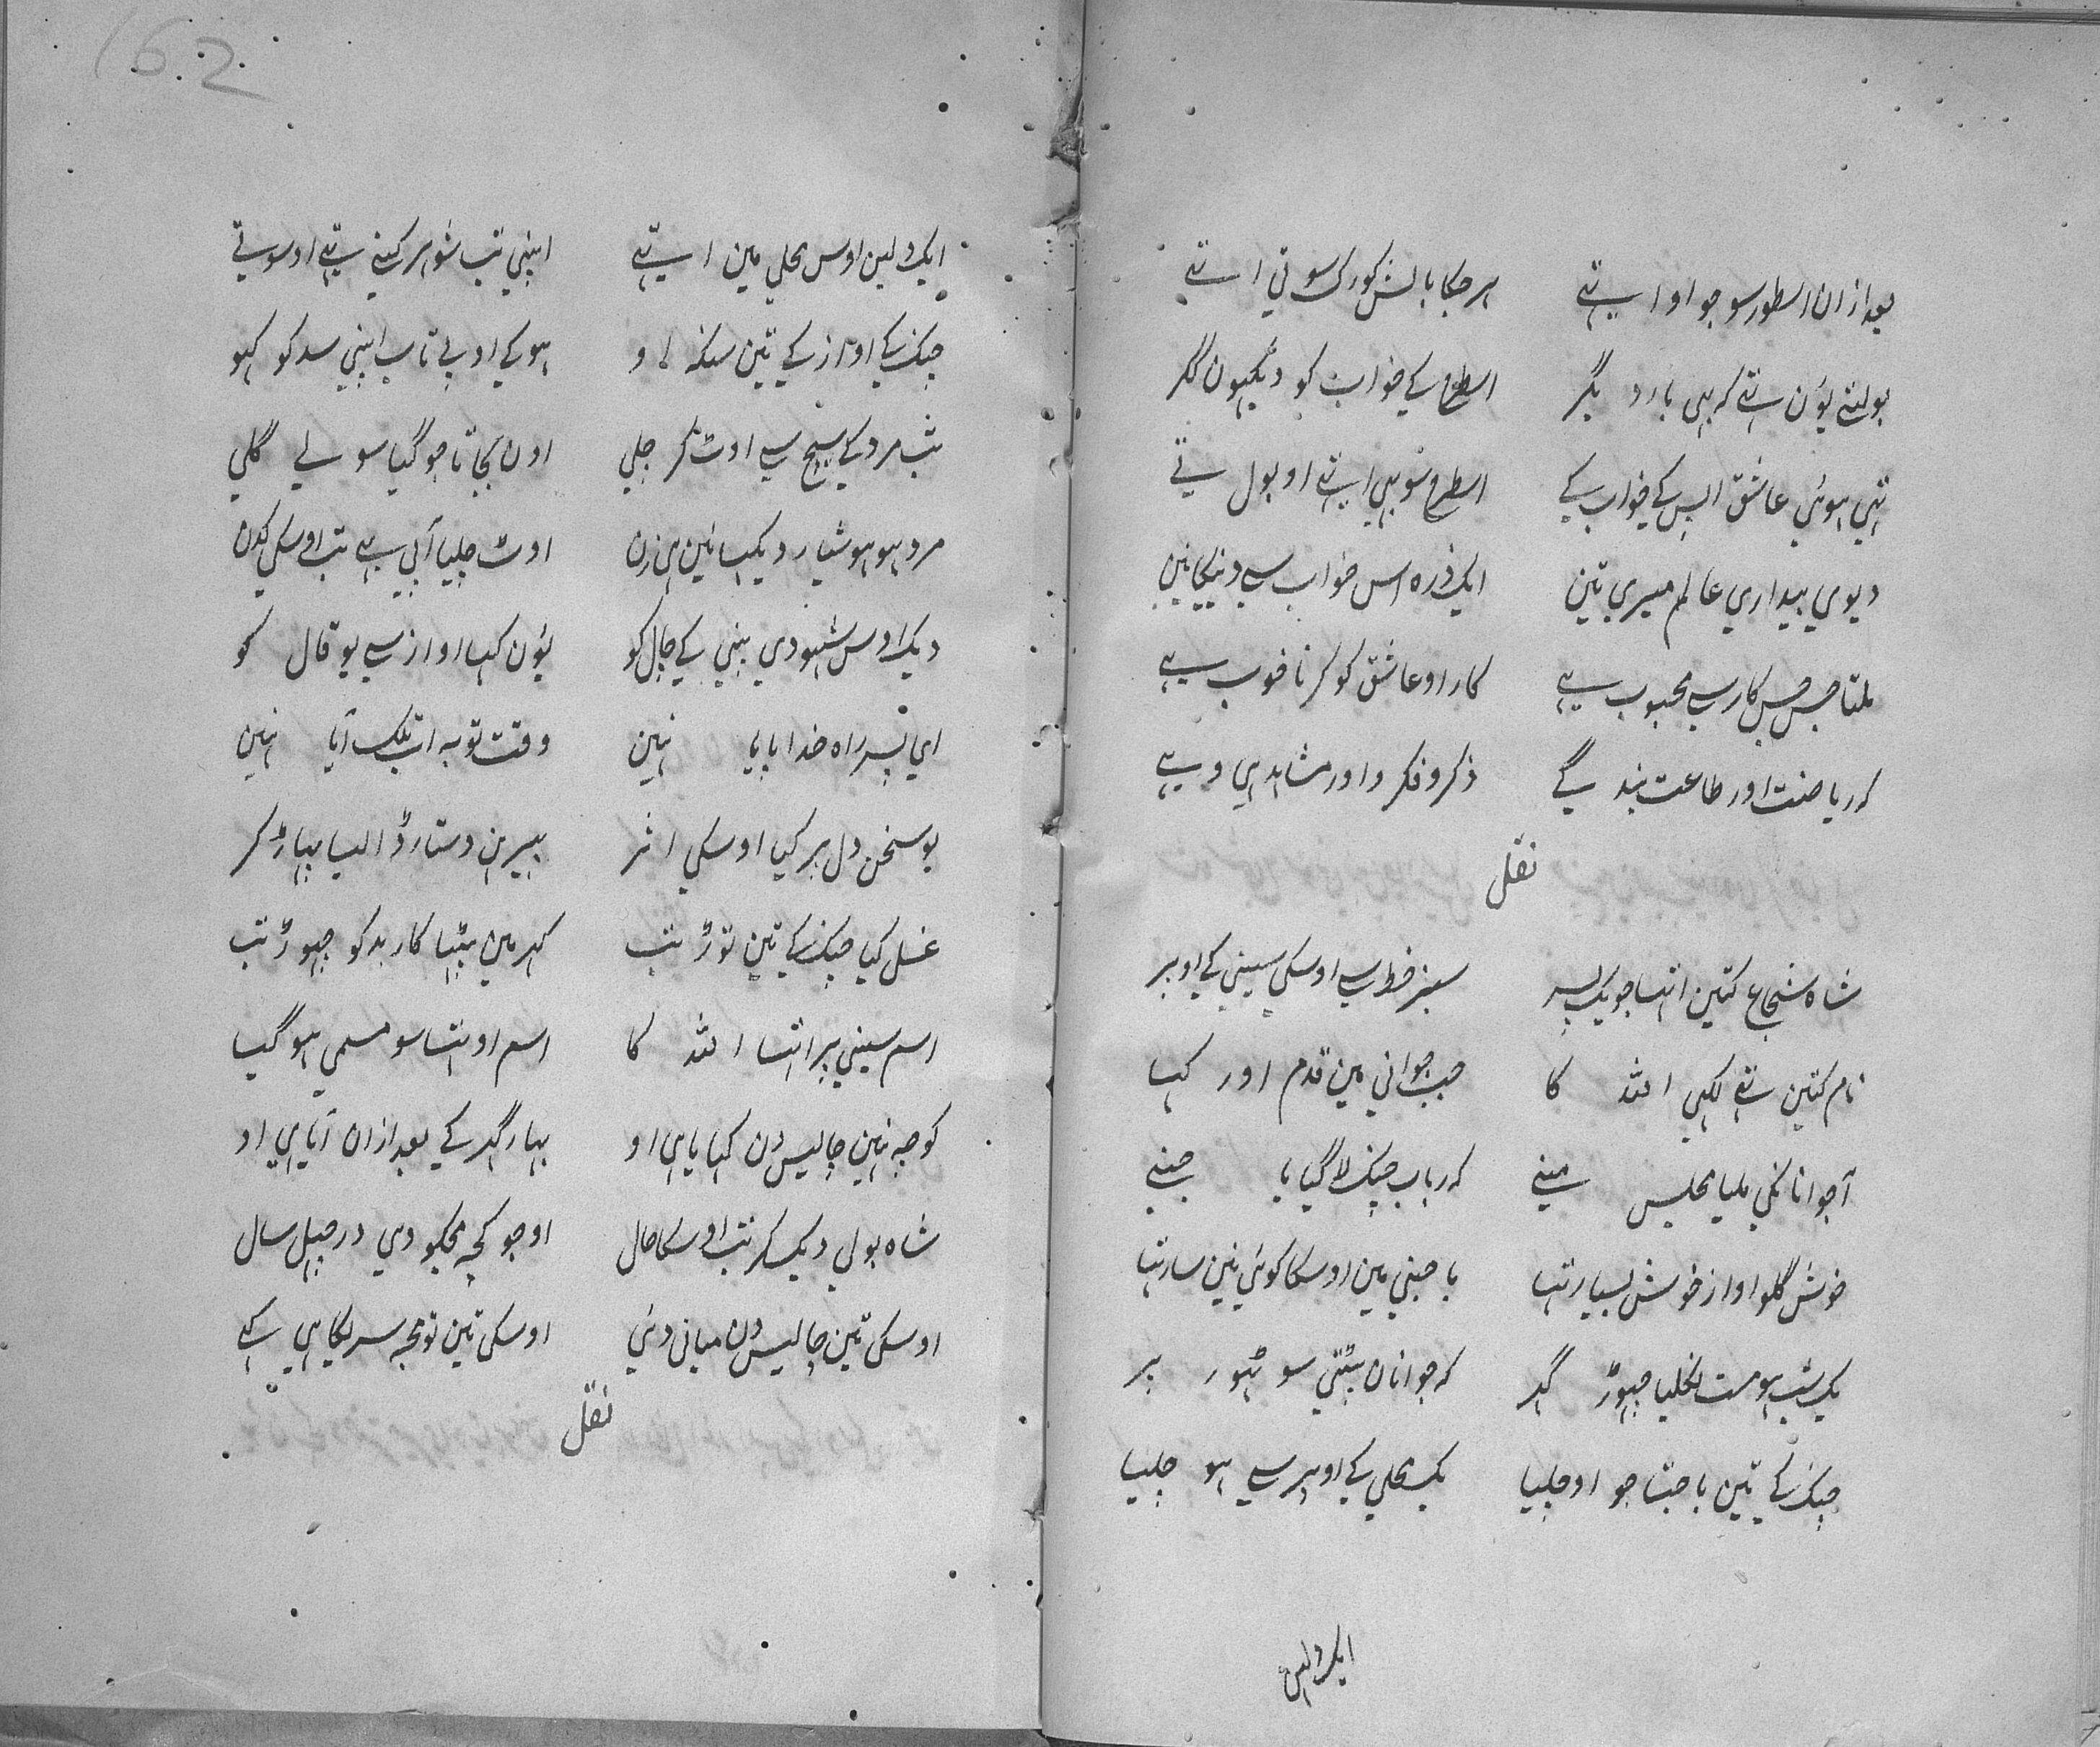 بعد ازان اسطور سو جو او اہتے ہر جکا بالش کو رک سوتی اتہے
بولتے یون تہے کہ ہی بار دیگر اسطرح کے خواب کو دیکہون مگر
تہی ہوئی عاشق اپس کے خواب کے اسطرح سو ہی اہتے او بول تہے
دیوی بیداری عالم میری تین ایک ذرہ اس خواب سے دیکہا نین
ملتا جس جس کار سے محبوب ہے کار او عاشق کو کرنا خوب ہے
کہ ریاضت اور طاعت بندگے ذکر و فکر و اور مشاہدہ ہی وہے
نقل
شاہ شجاع کتین اتہا جو یک پسر سبز خط سے اوسکی سینی کے اوپر
نام کتین تہے لکہی اللہ کا جب جوانی مین قدم اور کہیا
آ جوانانکی ملیا مجلس مینے کہ رباب چنک لاگیا با جنے
خوش گلو اواز خوش بسیار تہا با جنی مین اوسکا کوئی نین سار تہا
یک شب ہو مست نکلیا چہوڑ گہر کہ جوانان بیٹتی سو ٹہور پر
چنک کے تین باجتا جو او چلیا یک محلی کے اوپر سے ہو چلیا
ایک دلہن
ایک دلہن اوس محلی مین اہتے اپنی تب شوہر کنے تہے او سوتے
چنک کے اواز کے تین سنکہ او ہو کے او بی تاب اپنی سد کو کہو
تب مرد کے سیج سے اوٹ کر چلی اون بجاتا جو گیا سو لے گلی
مرد ہو ہوشیار دیکہا نین ہی زن اوٹ چلیا آپی بہی تب اوسکی کدن
دیک اوس شہودی بینی کے چال کو یون کہیا اواز سے یو قال کو
ای پسر راہ خدا پایا نہین وقت توبہ اب تلک آیا نہین
یو سخن دل پر کیا اوسکی اثر پیرہن دستار ڈالیا پہاڑ کر
غسل کیا چنک کے تین توڑ تب گہر مین بیٹہا کار بد کو چہوڑ تب
اسم سینی پر اتہا اللہ کا اسم او تہا سو مسمی ہو گیا
کوچہ نہین چالیس دن کہایا ہی او بہار گہر کے بعد ازان آیا ہی او
شاہ بولی دیک کر تب اوسکا حال او جو کچہ مجکو دی در چہل سال
اوسکی تین چالیس دن میانی دئی اوسکی تین تو مجہ سریکا ہی کئے
نقل